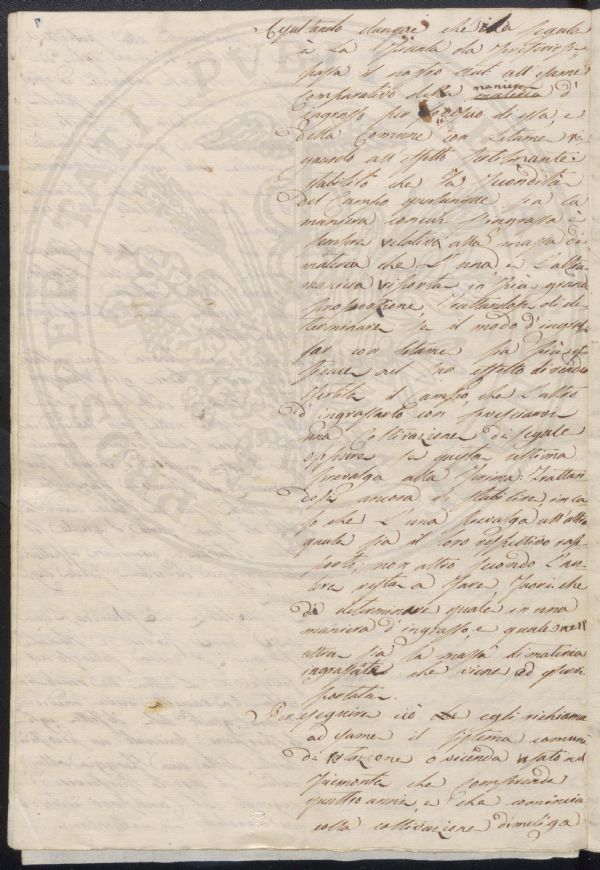 Risultando dunque che la segale
è la
passa il nostro aut. all'esame
comparativo della maniera materia d'
ingrasso per di essa, e
della Comune con letame, ri-
guardo all'effetto fertilizzante:
stabilito che la fecondità
del Campo qualunque sia la
maniera con cui s'ingrassa è
sempre relativa alla massa di
materia che l'una e l'altra
maniera riporta in più grande
proporzione. Trattandosi di de-
terminare se il modo d'ingras-
sar con letame sia più ef-
ficace nel suo effetto di render
fertile il campo, che l'altro
d'ingrassarlo con rovesciarvi
una Coltivazione di segale
oppure se questa ultima
prevalga alla prima: Trattan
dosi ancora di stabilire in ca
so che l'una prevalga all'altra
quale sia il loro rispettivo rap-
porto; non altro secondo l'au-
tore resta a fare fuori che
di determinare quale in una
maniera d'ingrasso, e quale nell'
altra sia la massa di materia
ingrassata che viene ad esser
portata.
Per eseguire ciò egli richiama
ad esame il sistema comune
di rotazione o vicenda usato in
Piemonte che comprende
quattro anni, e che comincia
colla coltivazione di meliga